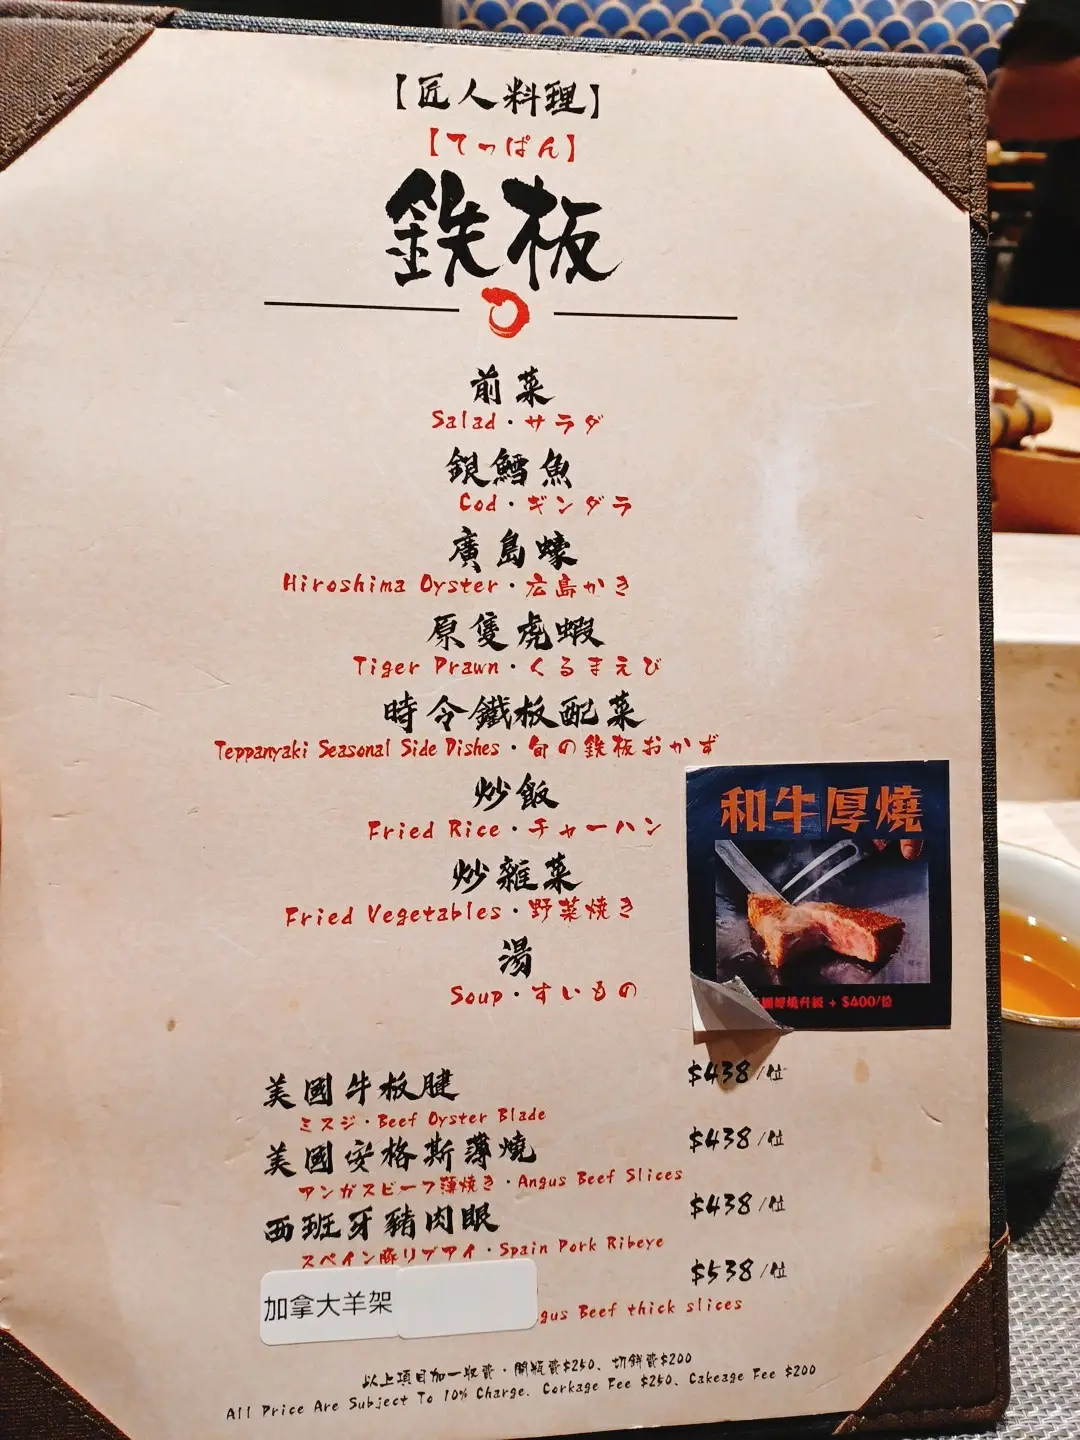 【匠人料理】
【てっぱん】
鉄板
前菜
Salad・サラダ
銀鱈魚
Cod・ギンダラ
廣島蠔
Hiroshima Oyster・広島かき
原隻虎蝦
Tiger Prawn・くるまえび
時令鐵板配菜
Teppanyaki Seasonal Side Dishes・旬の鉄板おかず
炒飯
Fried Rice・チャーハン
炒雜菜
Fried Vegetables・野菜焼き
湯
Soup・すいもの
和牛厚燒
升級 + $400/位
美國牛板腱 $438/位
ミスジ・Beef Oyster Blade
美國安格斯薄燒 $438/位
アンガスビーフ薄焼き・Angus Beef Slices
西班牙豬肉眼 $438/位
スペイン豚リブアイ・Spain Pork Ribeye
加拿大羊架 $538/位
gus Beef thick slices
以上項目加一收費・開瓶費$250、切餅費$200
All Price Are Subject To 10% Charge. Corkage Fee $250、Cakeage Fee $200